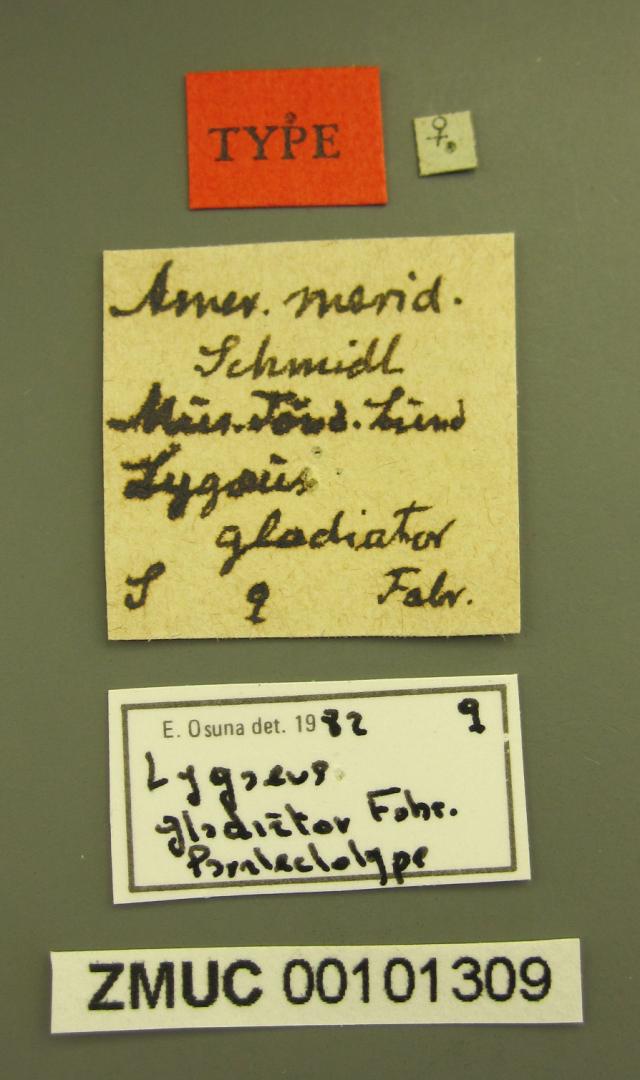 TYPE
♀
Amer. merid.
Schmidt
Mus. Lund
Lygæus
gladiator
S ♀ Fabr.
E. Osuna det. 1982 ♀
Lygaeus
gladiator Fabr.
Paralectotype
ZMUC 00101309